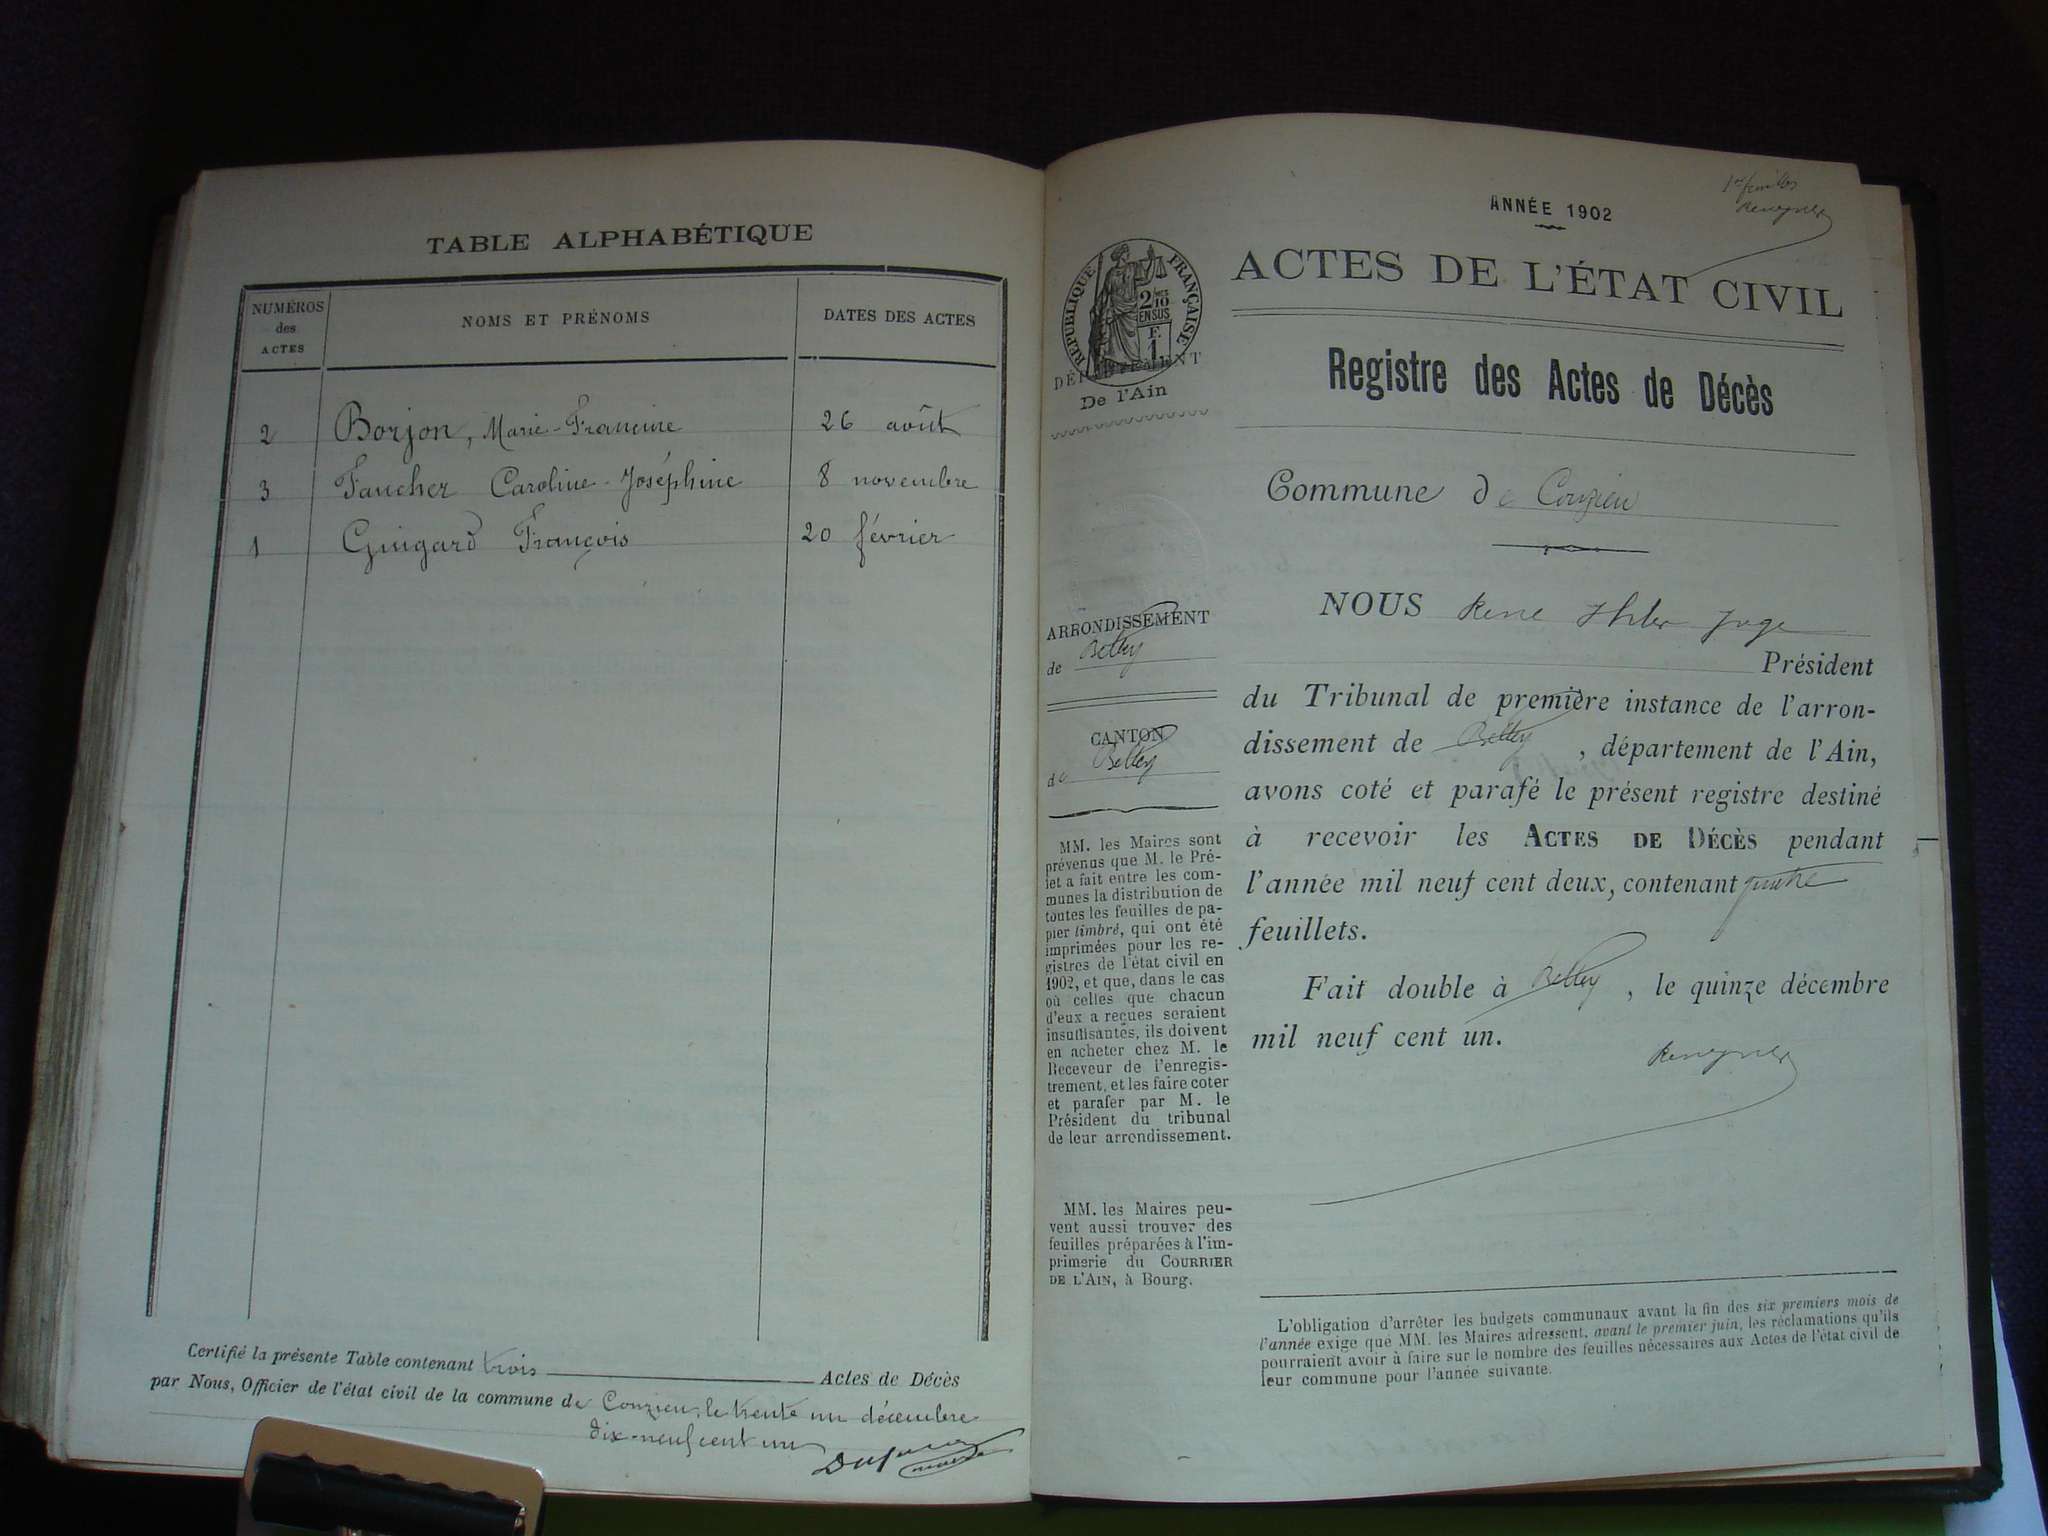 TABLE ALPHABÉTIQUE
NUMÉROS
des
ACTES
NOMS ET PRÉNOMS
DATES DES ACTES
2 Borjon, Marie-Francine 26 août
3 Faucher Caroline-Joséphine 8 novembre
1 Guigard François 20 février
Certifié la présente Table contenant trois Actes de Décès
par Nous, Officier de l'état civil de la commune de Conzieu, le trente un décembre
dix-neuf cent un
ANNÉE 1902
RÉPUBLIQUE FRANÇAISE
2 10
EN SUS
F.
1
DÉPARTEMENT
De l'Ain
ACTES DE L'ÉTAT CIVIL
Registre des Actes de Décès
Commune de Conzieu
ARRONDISSEMENT
de Belley
CANTON
de Belley
MM. les Maires sont
prévenus que M. le Pré-
fet a fait entre les com-
munes la distribution de
toutes les feuilles de pa-
pier timbré, qui ont été
imprimées pour les re-
gistres de l'état civil en
1902, et que, dans le cas
où celles que chacun
d'eux a reçues seraient
insuffisantes, ils doivent
en acheter chez M. le
Receveur de l'enregis-
trement, et les faire coter
et parafer par M. le
Président du tribunal
de leur arrondissement.
MM. les Maires peu-
vent aussi trouver des
feuilles préparées à l'im-
primerie du COURRIER
DE L'AIN, à Bourg.
NOUS René Juge
Président
du Tribunal de première instance de l'arron-
dissement de Belley, département de l'Ain,
avons coté et parafé le présent registre destiné
à recevoir les ACTES DE DÉCÈS pendant
l'année mil neuf cent deux, contenant quatre
feuillets.
Fait double à Belley, le quinze décembre
mil neuf cent un.
L'obligation d'arrêter les budgets communaux avant la fin des six premiers mois de
l'année exige que MM. les Maires adressent, avant le premier juin, les réclamations qu'ils
pourraient avoir à faire sur le nombre des feuilles nécessaires aux Actes de l'état civil de
leur commune pour l'année suivante.